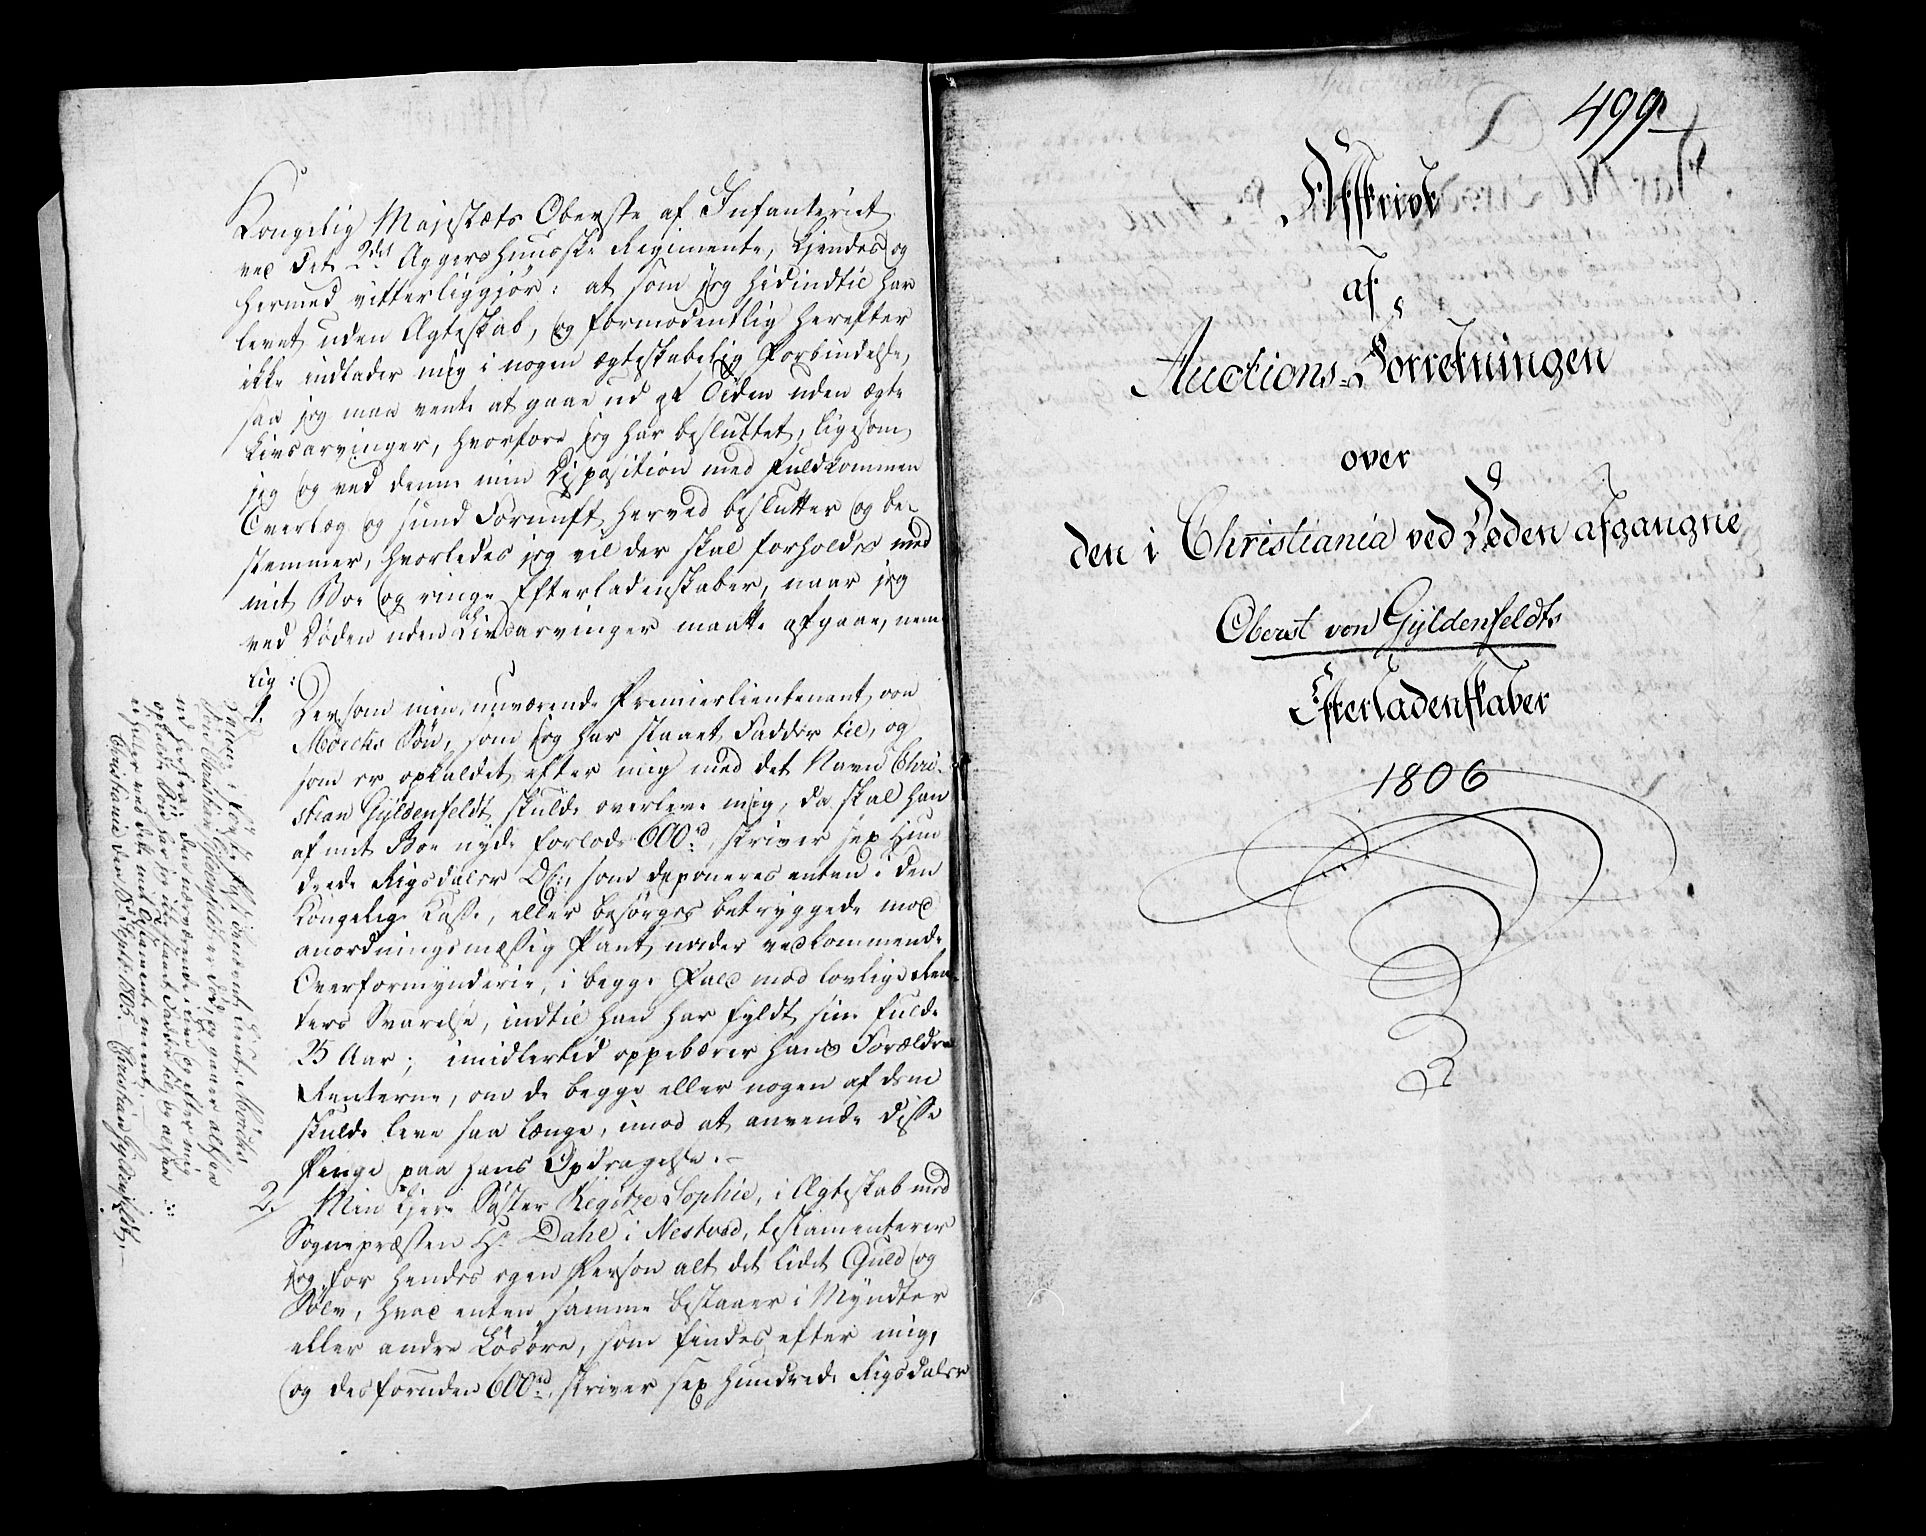 Kongelig Majestæts Oberste af Infanteriet
ved det 2det Aggershuusske Regimente, kjendes og
hermed vitterliggjør: at som jeg hidindtil har
levet uden Ægteskab, og formodentlig herefter
ikke indlader mig i nogen ægteskabelig Forbindelse,
saa jeg maa vente at gaae ud af Tiden uden ægte
Livsarvinger, hvorfore jeg har besluttet, ligesom
jeg og ved denne min Disposition med fuldkommen
Overlæg og sund Fornuft herved beslutter og be-
stemmer, hvorledes jeg vil der skal forholdes med
mit Boe og ringe Efterladenskaber, naar jeg
ved Døden uden Livsarvinger maatte afgaae, nem
lig:
1. Dersom min nuværende Premierlieutenant von
Moecks Søn, som jeg har staaet Fadder til, og
som er opkaldet efter mig med det Navn Chri-
stian Gyldenfeldt skulde overleve mig, da skal han
af mit Boe nyde forlods 600rd, skriver sex Hun
drede Rigsdaler DC:, som deponeres enten i den
Kongelige Kasse, eller besørges betryggede mod
anordningsmæssig Pant under vedkommende
Overformynderie, i begge Fald mod lovlige Ren-
ters Svarelse, indtil han har fyldt sine fulde
25 Aar; imidlertid oppebærer hans Forældre
Renterne, om de begge eller nogen af dem
skulde leve saa længe, imod at anvende disse
Penge paa hans Opdragelse.
2. Min kjere Søster Regitze Sophie, i Ægteskab med
Sognepræsten Hr Dahl i Nestved, testamenterer
jeg for hendes egen Person alt det lidet Guld og
Sølv, hvad enten samme bestaaer i Myndter
eller andre Løsøre, som findes efter mig,
og desforuden 600rd, skriver sex Hundrede Rigsdaler
Christian Gyldenfeldt er død, og gaaer altsaa
ud herfra; den nærværende i live og efter mig
opkaldte Søn har jeg ikke staaet Fadder til, og altsaa
ei heller ved dette mit Testamente meent.
Christiania den 8de Septb: 1805. Christian Gyldenfeldt.
499
Afskrivt
af
Auctions-Forretningen
over
den i Christiania ved Døden afgangne
Oberst von Gyldenfeldts
Efterladenskaber
1806